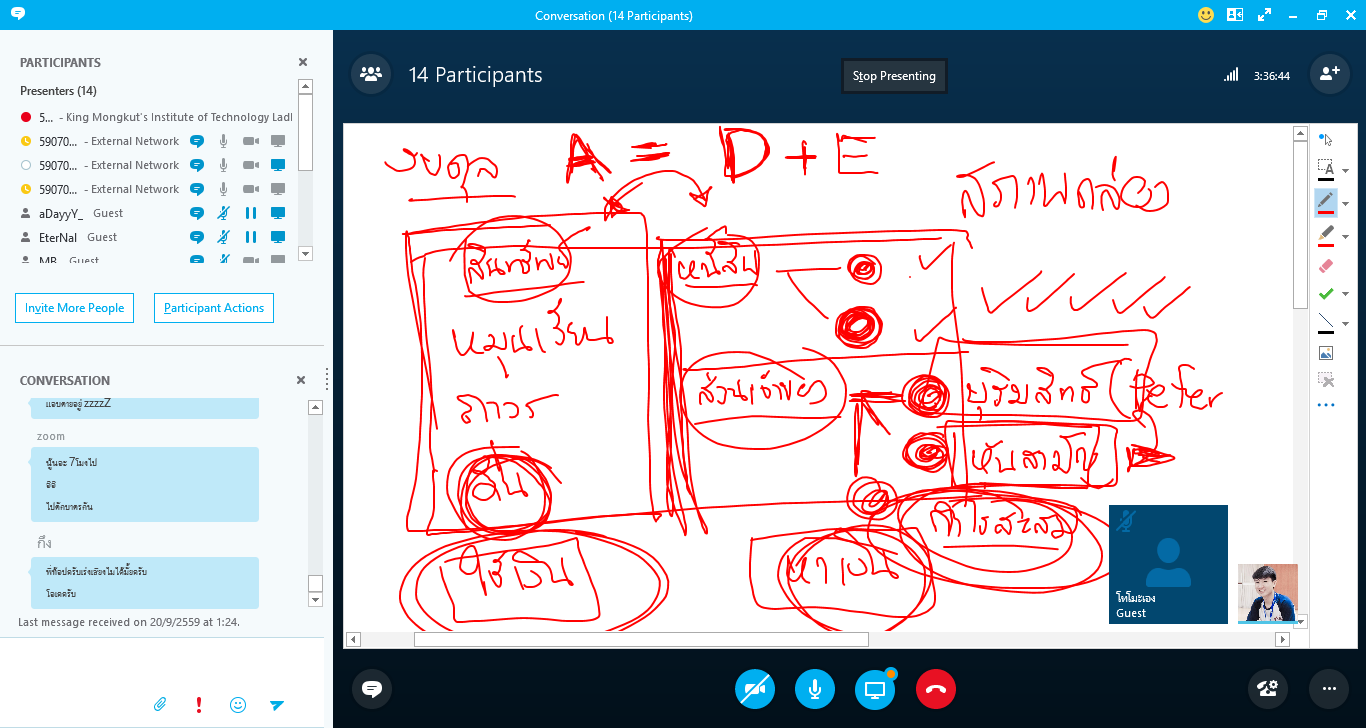 Conversation (14 Participants)
PARTICIPANTS
Presenters (14)
5... - King Mongkut's Institute of Technology Ladl
59070... - External Network
59070... - External Network
59070... - External Network
aDayyY_ Guest
EterNal Guest
MB Guest
Invite More People
Participant Actions
CONVERSATION
แอบคายอยู่ zzzzZ
zoom
นู้นจะ 7โมงไป
อิอิ
ไปตักบาตรกัน
กึ๋ง
พี่ท้อปครับเร่งเสียงไมได้มั้ยครับ
โอเคครับ
Last message received on 20/9/2559 at 1:24.
14 Participants
Stop Presenting
3:36:44
A = D + E
งบดุล
สภาพคล่อง
สินทรัพย์
หนี้สิน
หมุนเวียน
ส่วนเจ้าของ
บุริมสิทธิ (Prefer
ถาวร
หุ้นสามัญ
อื่น
กำไรสะสม
ใช้เงิน
หาเงิน
โทโมะเอง
Guest